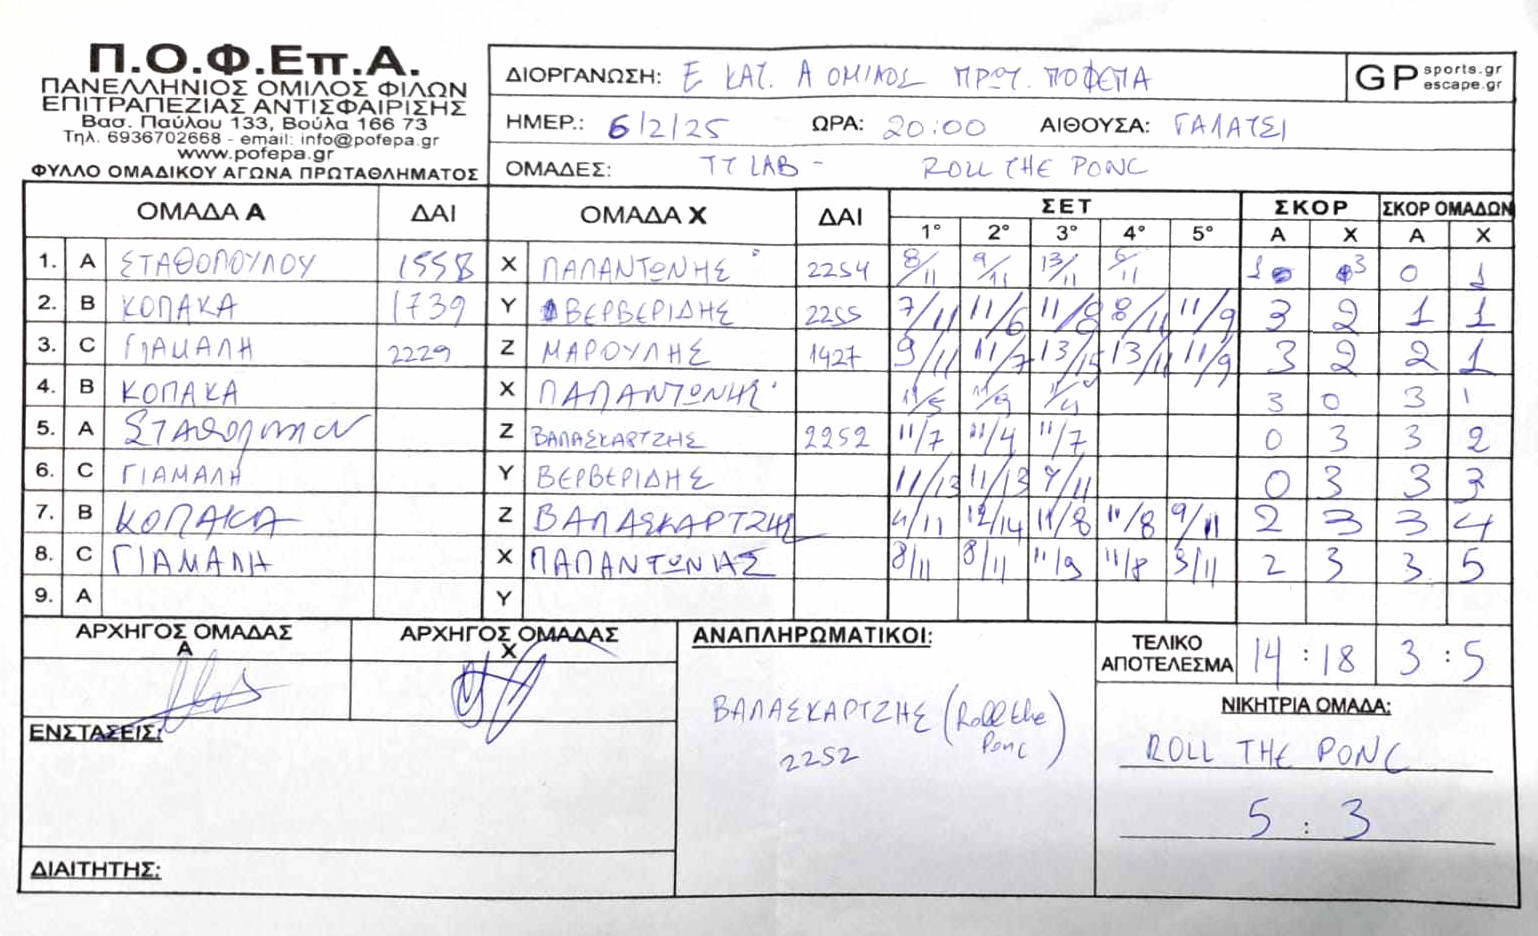 Π.Ο.Φ.Επ.Α.
ΠΑΝΕΛΛΗΝΙΟΣ ΟΜΙΛΟΣ ΦΙΛΩΝ
ΕΠΙΤΡΑΠΕΖΙΑΣ ΑΝΤΙΣΦΑΙΡΙΣΗΣ
Βασ. Παύλου 133, Βούλα 166 73
Τηλ. 6936702668 - email: info@pofepa.gr
www.pofepa.gr
ΦΥΛΛΟ ΟΜΑΔΙΚΟΥ ΑΓΩΝΑ ΠΡΩΤΑΘΛΗΜΑΤΟΣ
ΔΙΟΡΓΑΝΩΣΗ: Ε ΚΑΤ. Α ΟΜΙΛΟΣ ΠΡΩΤ. ΠΟΦΕΠΑ
GP sports.gr escape.gr
ΗΜΕΡ.: 6/2/25 ΩΡΑ: 20:00 ΑΙΘΟΥΣΑ: ΓΑΛΑΤΣΙ
ΟΜΑΔΕΣ: TT LAB - ROLL THE PONC
ΟΜΑΔΑ Α ΔΑΙ ΟΜΑΔΑ Χ ΔΑΙ ΣΕΤ ΣΚΟΡ ΣΚΟΡ ΟΜΑΔΩΝ
1° 2° 3° 4° 5° Α Χ Α Χ
1. Α ΣΤΑΘΟΠΟΥΛΟΥ 1558 Χ ΠΑΠΑΝΤΩΝΗΣ 2254 8/11 9/11 13/11 6/11 1 3 0 1
2. Β ΚΟΠΑΚΑ 1739 Υ ΒΕΡΒΕΡΙΔΗΣ 2255 7/11 11/6 11/8 8/11 11/9 3 2 1 1
3. C ΓΙΑΜΑΛΗ 2229 Ζ ΜΑΡΟΥΛΗΣ 1427 9/11 11/7 13/15 13/11 11/9 3 2 2 1
4. Β ΚΟΠΑΚΑ Χ ΠΑΠΑΝΤΩΝΗΣ 11/5 11/9 11/9 3 0 3 1
5. Α Σταθοπούλου Ζ ΒΑΛΑΣΚΑΡΤΖΗΣ 2252 11/7 11/4 11/7 0 3 3 2
6. C ΓΙΑΜΑΛΗ Υ ΒΕΡΒΕΡΙΔΗΣ 11/13 11/13 7/11 0 3 3 3
7. Β ΚΟΠΑΚΑ Ζ ΒΑΛΑΣΚΑΡΤΖΗΣ 4/11 12/14 11/8 11/8 9/11 2 3 3 4
8. C ΓΙΑΜΑΛΗ Χ ΠΑΠΑΝΤΩΝΙΑΣ 8/11 8/11 11/9 11/8 3/11 2 3 3 5
9. Α Υ
ΑΡΧΗΓΟΣ ΟΜΑΔΑΣ Α ΑΡΧΗΓΟΣ ΟΜΑΔΑΣ Χ ΑΝΑΠΛΗΡΩΜΑΤΙΚΟΙ: ΤΕΛΙΚΟ ΑΠΟΤΕΛΕΣΜΑ 14 : 18 3 : 5
ΒΑΛΑΣΚΑΡΤΖΗΣ (Roll the Ponc)
2252
ΝΙΚΗΤΡΙΑ ΟΜΑΔΑ:
ROLL THE PONC
5 : 3
ΕΝΣΤΑΣΕΙΣ:
ΔΙΑΙΤΗΤΗΣ: